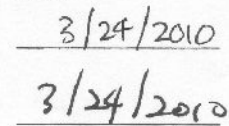 3/24/2010
3/24/2010